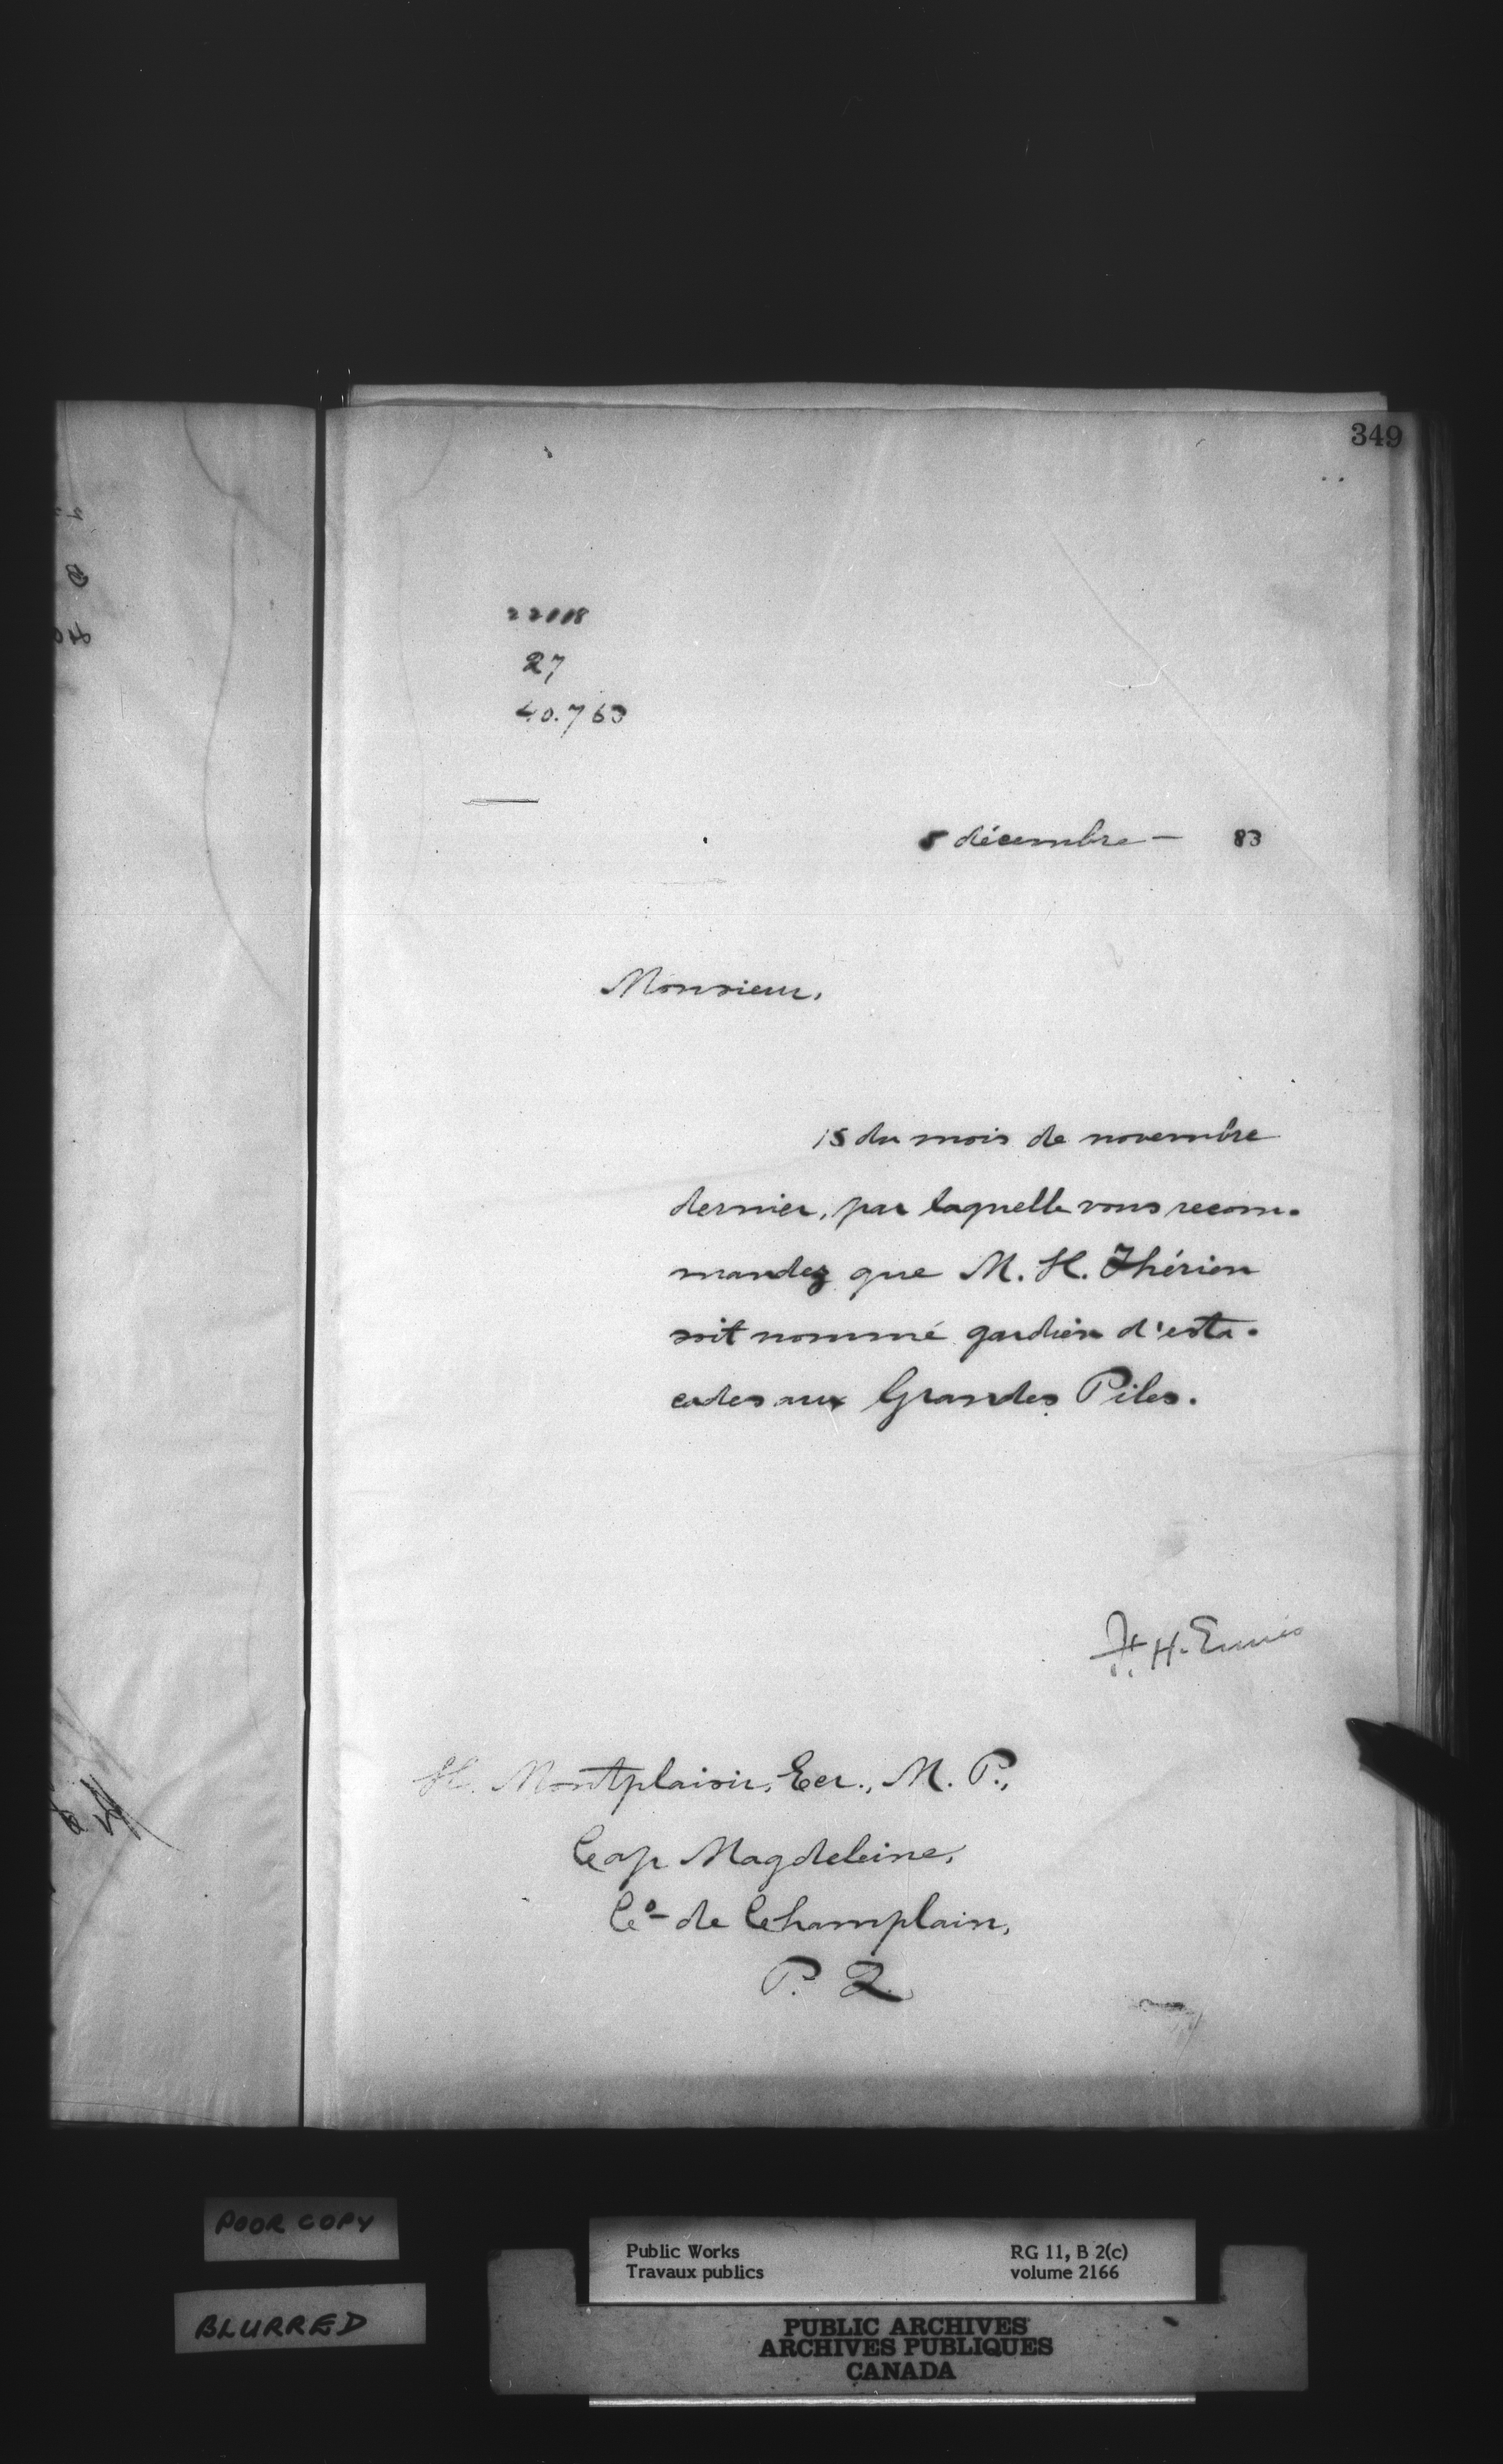 349
22118
27
40.763
5 décembre — 83
Monsieur,
15 du mois de novembre
dernier, par laquelle vous recom-
mandez que M. H. Thérien
soit nommé gardien d'esta-
cades aux Grandes Piles.
F. H. Ennis
H. Montplaisir, Ecr., M. P.,
Cap Magdeleine,
Co de Champlain,
P. Q.
POOR COPY
BLURRED
Public Works
Travaux publics
RG 11, B 2(c)
volume 2166
PUBLIC ARCHIVES
ARCHIVES PUBLIQUES
CANADA